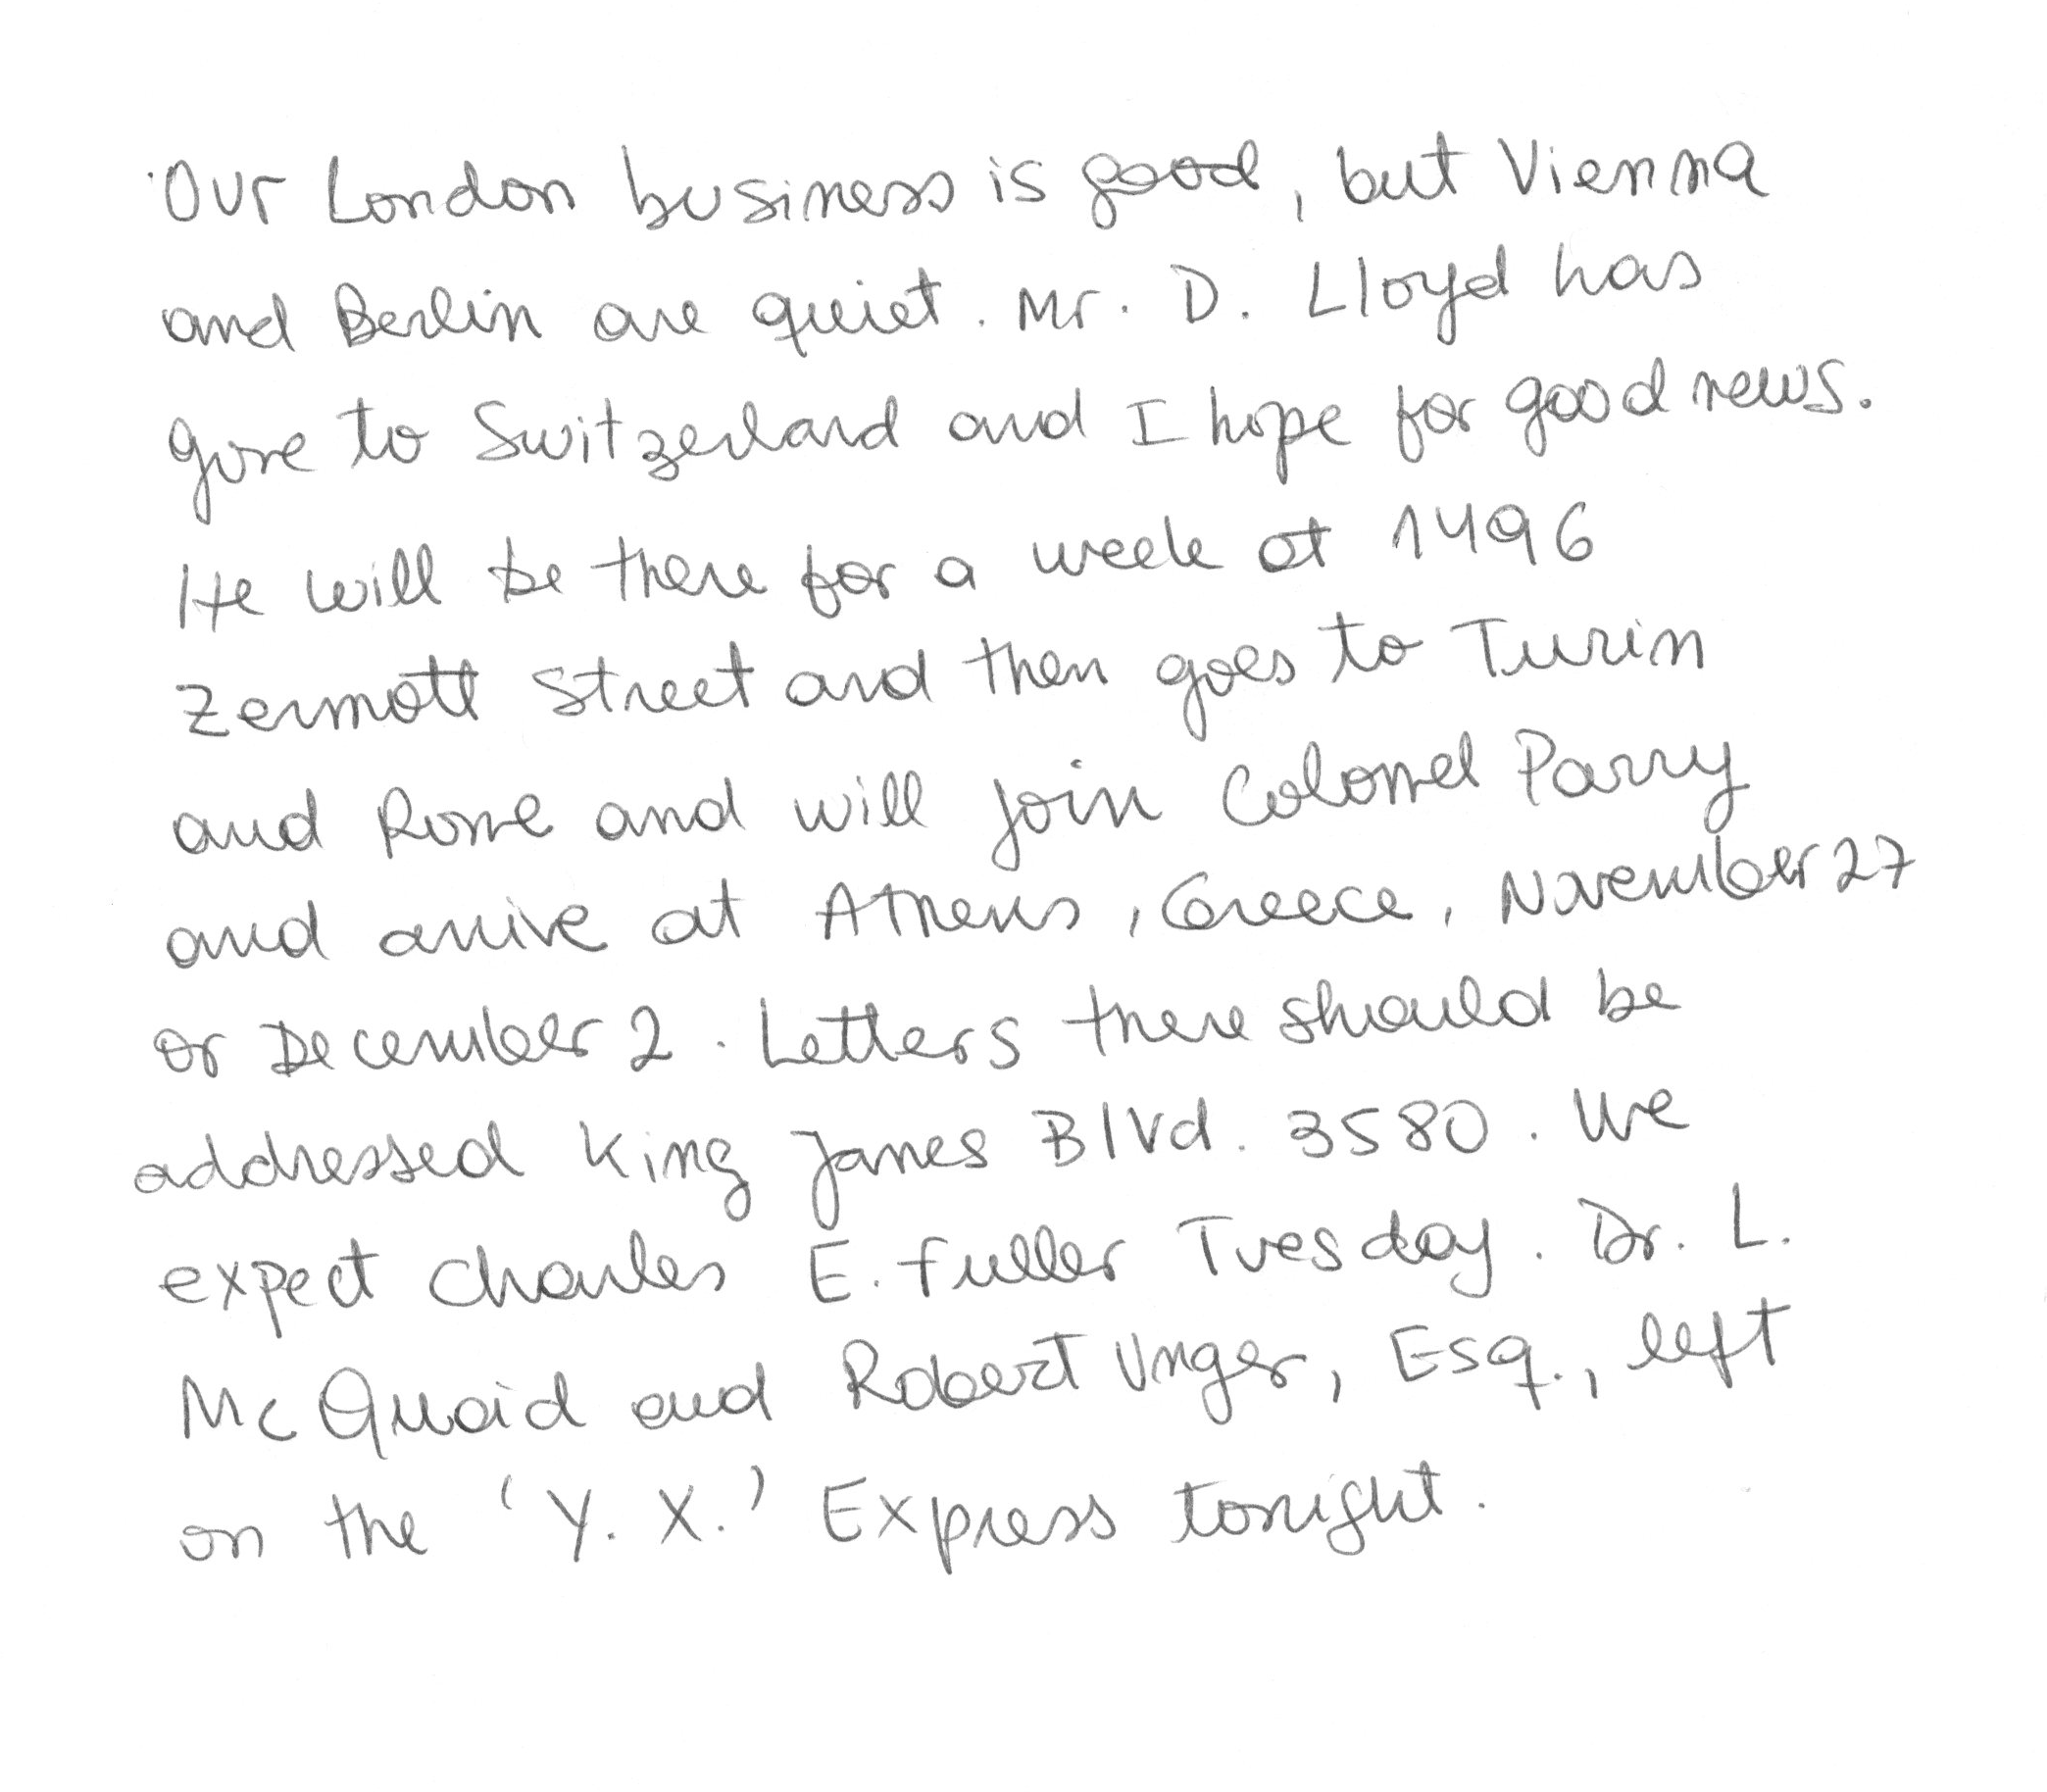 Our London business is good, but Vienna
and Berlin are quiet. Mr. D. Lloyd has
gone to Switzerland and I hope for good news.
He will be there for a week at 1496
Zermott Street and then goes to Turin
and Rome and will join Colonel Parry
and arrive at Athens, Greece, November 27
or December 2. Letters there should be
addressed King James Blvd. 3580. We
expect Charles E. Fuller Tuesday. Dr. L.
McQuaid and Robert Unger, Esq., left
on the 'Y. X.' Express tonight.